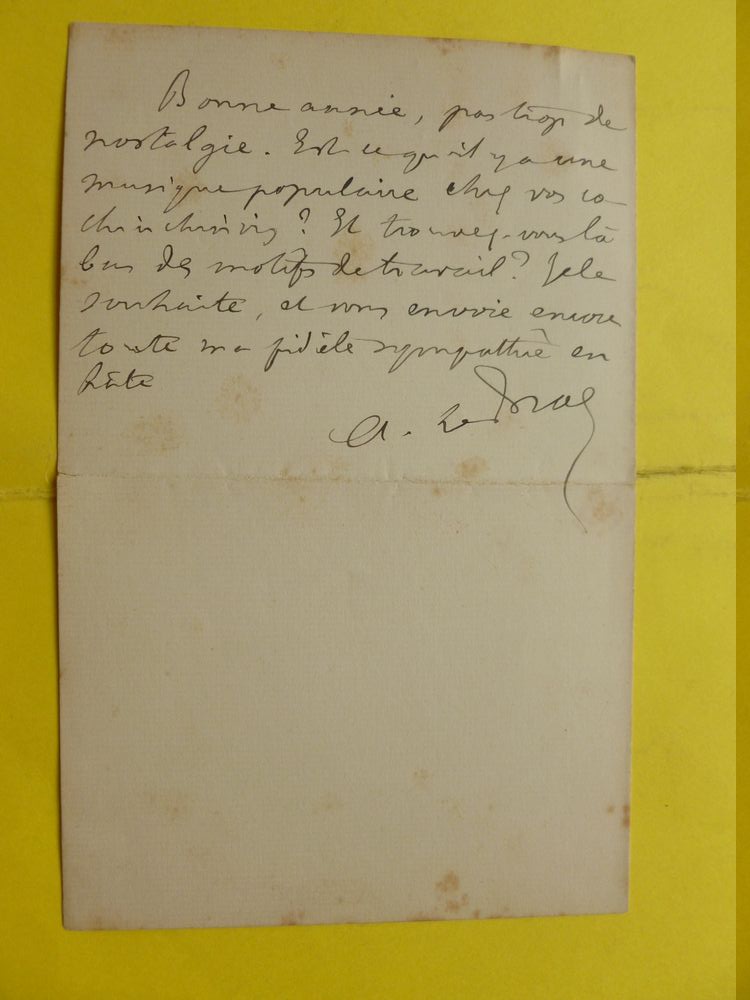 Bonne année, pas trop de
nostalgie. Est-ce qu'il y a une
musique populaire chez vos co-
chinchinois ? Et trouvez-vous là
bas des motifs de travail ? Je le
souhaite, et vous envoie encore
toute ma fidèle sympathie en
hâte
A. Le Braz